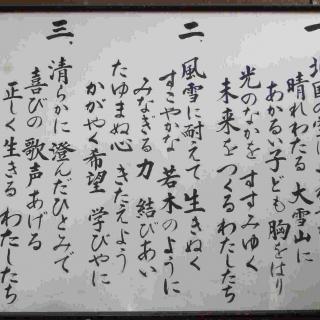 一、
北国の空に
晴れわたる 大雪山に
あかるい子ども 胸をはり
光のなかを すすみゆく
未来を つくる わたしたち
二、
風雪に 耐えて 生きぬく
すこやかな 若木のように
みなぎる 力 結びあい
たゆまぬ心 きたえよう
かがやく希望 学びやに
三、
清らかに 澄んだひとみで
喜びの 歌声あげる
正しく 生きる わたしたち